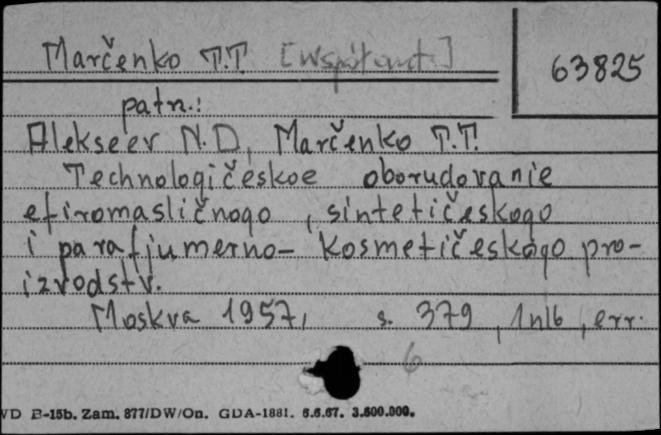 Marčenko T.T. [Współaut.]
63825
patrz:
Alekseev N.D., Marčenko T.T.
Technologičeskoe oborudovanie
efiromasličnogo, sintetičeskogo
i parafjumerno- kosmetičeskogo pro-
izvodstv.
Moskva 1957, s. 379, 1nlb, err.
6
WD B-15b. Zam. 877/DW/On. GDA-1881. 6.6.67. 3.500.000.